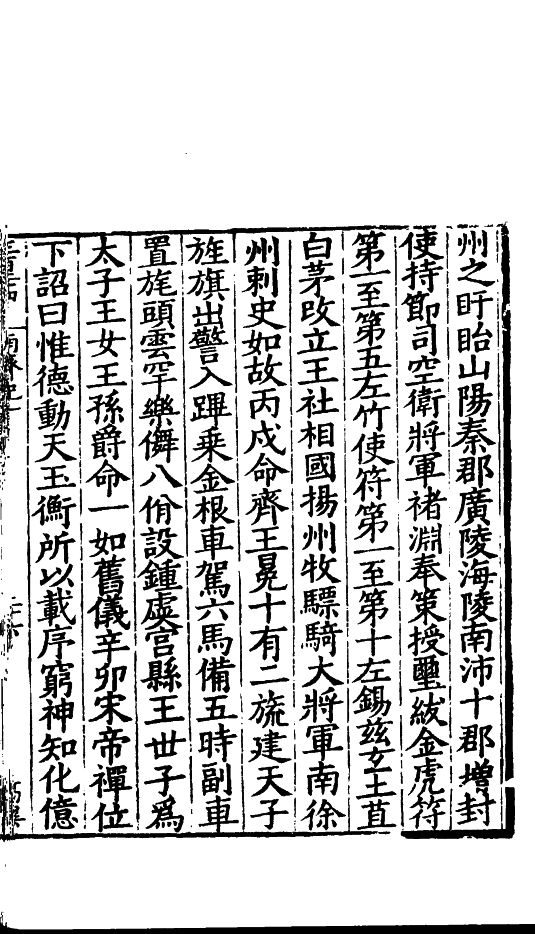 州之盱眙山陽秦郡廣陵海陵南沛十郡增封
使持節司空衛將軍褚淵奉策授璽紱金虎符
第一至第五左竹使符第一至第十左錫茲玄土苴
白茅改立王社相國揚州牧驃騎大將軍南徐
州刺史如故丙戌命齊王冕十有二旒建天子
旌旗出警入蹕乗金根車駕六馬備五時副車
置旄頭雲罕樂儛八佾設鍾虡宮縣王世子爲
太子王女王孫爵命一如舊儀辛卯宋帝禪位
下詔曰惟德動天玉衡所以載序窮神知化億